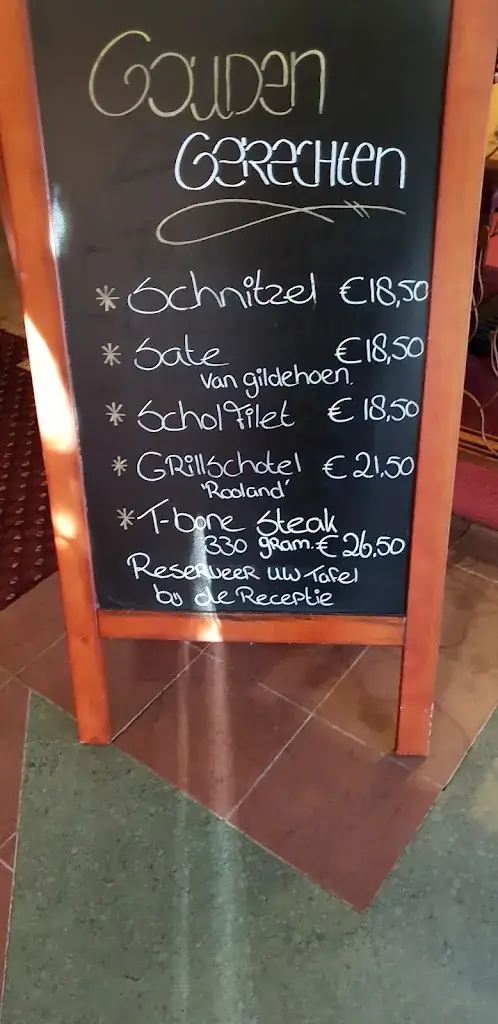 Gouden
Gerechten
* Schnitzel €18,50
* Sate €18,50
van gildehoen.
* Scholfilet €18,50
* Grillschotel €21,50
'Rooland'
* T-bone Steak
330 gram. €26,50
Reserveer uw Tafel
bij de Receptie